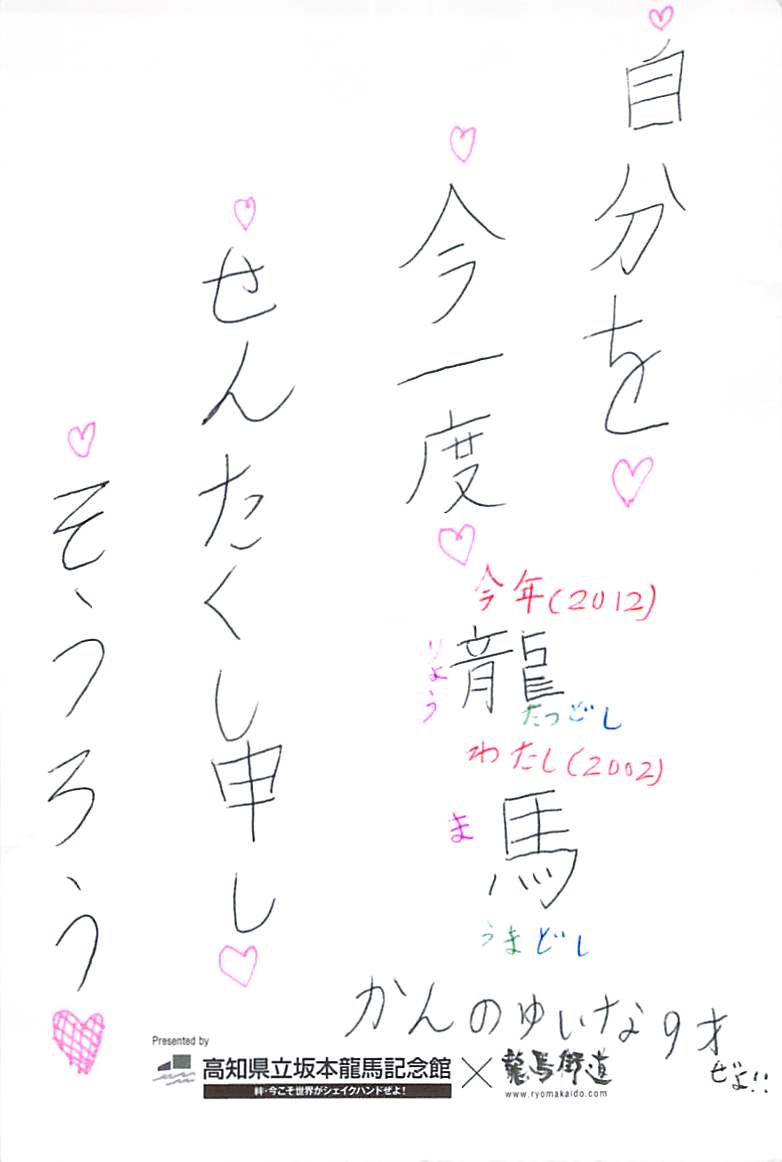 自分を
今一度
せんたくし申し
そうろう
今年(2012)
龍
りょう
たつどし
わたし(2002)
馬
ま
うまどし
かんのゆいな9才
ぜよ!!
Presented by
高知県立坂本龍馬記念館×龍馬街道
絆・今こそ世界がシェイクハンドぜよ!
www.ryomakaido.com